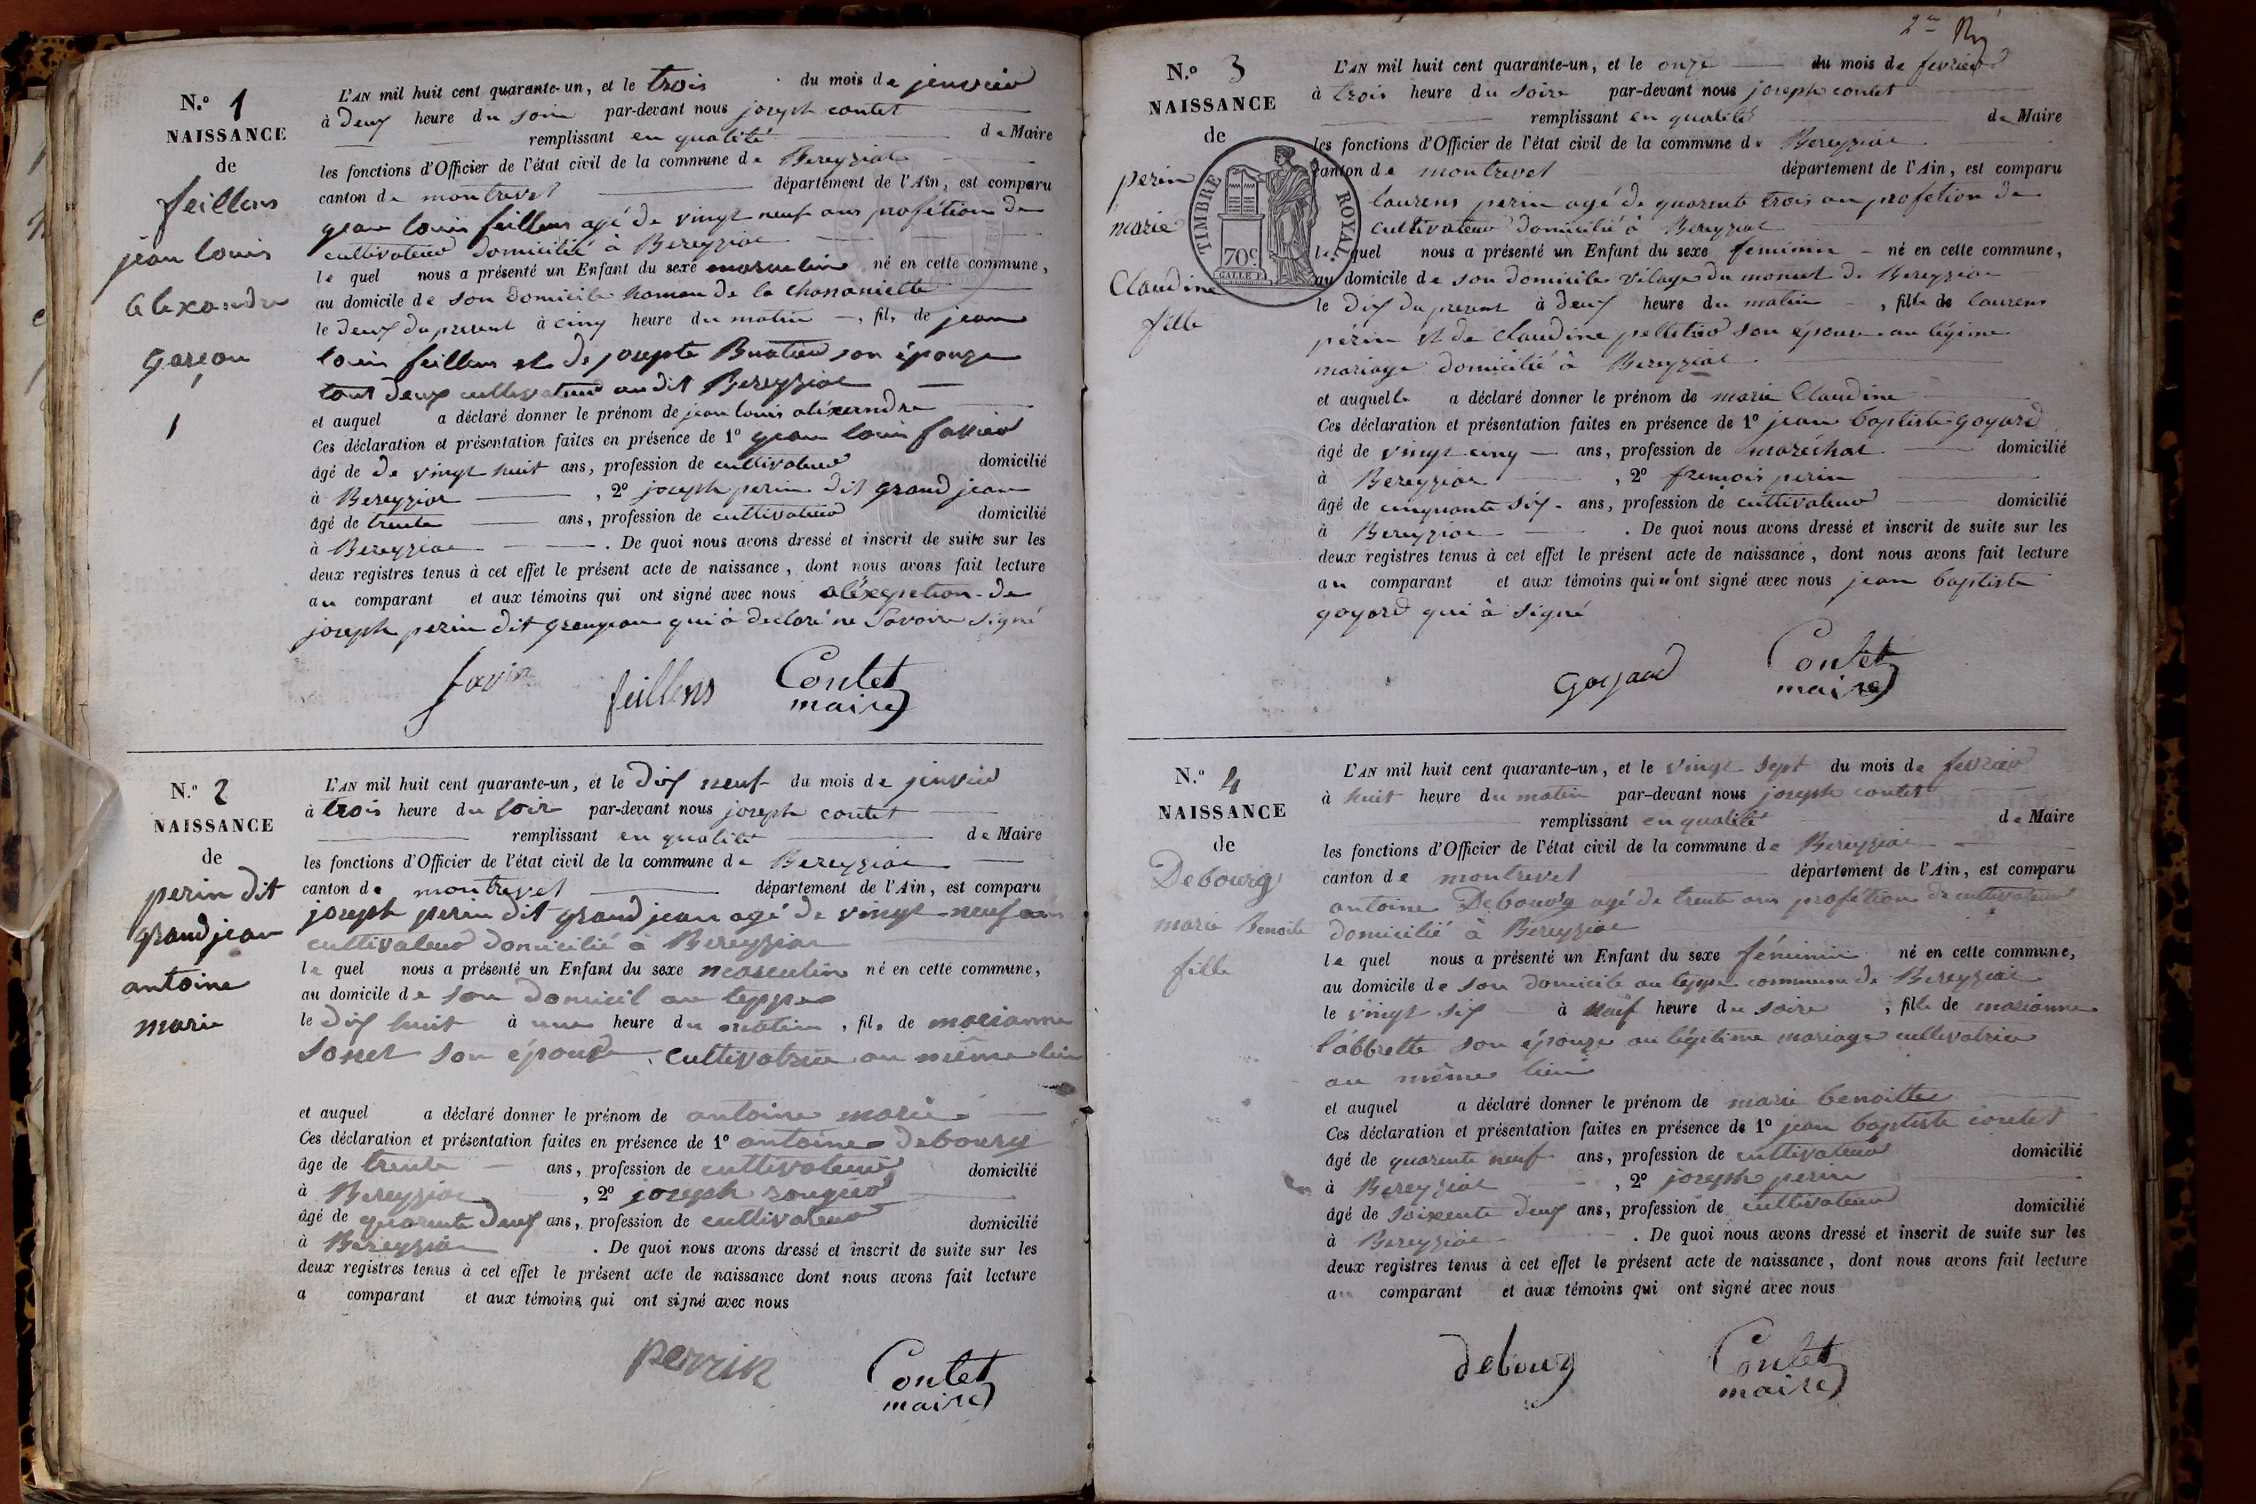 N.º 1
NAISSANCE
de
feillens
jean louis
alexandre
garçon
1
L'AN mil huit cent quarante-un, et le trois du mois de jenvier
à deux heure du soire par-devant nous joseph contet
remplissant en qualité de Maire
les fonctions d'Officier de l'état civil de la commune de Bereyziat
canton de montrevel département de l'Ain, est comparu
jean louis feillens agé de vingt neuf ans profétion de
cultivateur domicilié à Bereyziat
le quel nous a présenté un Enfant du sexe masculin né en cette commune,
au domicile de son domicile hameau de la
le deux du present à cinq heure du matin, fils de jean
louis feillens et de josepte Buatier son épouze
tout deux cultivateur audit Bereyziat
et auquel a déclaré donner le prénom de jean louis aléxandre
Ces déclaration et présentation faites en présence de 1º jean louis favier
âgé de de vingt huit ans, profession de cultivateur domicilié
à Bereyziat, 2º joseph perin dit grand jean
âgé de trente ans, profession de cultivateur domicilié
à Bereyziat. De quoi nous avons dressé et inscrit de suite sur les
deux registres tenus à cet effet le présent acte de naissance, dont nous avons fait lecture
au comparant et aux témoins qui ont signé avec nous aléxeption de
joseph perin dit granjean qui à declaré ne savoire signé
favier feillens Contet
maire
N.º 2
NAISSANCE
de
perin dit
grand jean
antoine
marie
L'AN mil huit cent quarante-un, et le dix neuf du mois de jenvier
à trois heure du soir par-devant nous joseph contet
remplissant en qualité de Maire
les fonctions d'Officier de l'état civil de la commune de Bereyziat
canton de montrevel département de l'Ain, est comparu
joseph perin dit grand jean agé de vingt neuf ans
cultivateur domicilié à Bereyziat
le quel nous a présenté un Enfant du sexe masculin né en cette commune,
au domicile de son domicil au teppes
le dix huit à une heure du matin, fils de marianne
sonet son épouse cultivatrice au même lieu
et auquel a déclaré donner le prénom de antoine marie
Ces déclaration et présentation faites en présence de 1º antoine debourg
âge de trente ans, profession de cultivateur domicilié
à Bereyziat, 2º joseph
âgé de quarente deux ans, profession de cultivateur domicilié
à Bereyziat. De quoi nous avons dressé et inscrit de suite sur les
deux registres tenus à cet effet le présent acte de naissance dont nous avons fait lecture
a comparant et aux témoins qui ont signé avec nous
perrin Contet
maire
N.º 3
NAISSANCE
de
perin
marie
Claudine
fille
TIMBRE ROYAL.
70c.
L'AN mil huit cent quarante-un, et le onze du mois de fevrier
à trois heure du soire par-devant nous joseph contet
remplissant en qualité de Maire
les fonctions d'Officier de l'état civil de la commune de Bereyziat
canton de montrevel département de l'Ain, est comparu
laurens perin agé de quarente trois an profetion de
cultivateur domicilié à Bereyziat
le quel nous a présenté un Enfant du sexe feminin né en cette commune,
au domicile de son domicile vilage du de Bereyziat
le dix du present à deux heure du matin, fille de laurens
périn et de claudine pelletier son épouse au légime
mariage domicilié à Bereyziat
et auquelle a déclaré donner le prénom de marie Claudine
Ces déclaration et présentation faites en présence de 1º jean baptiste goyard
âgé de vingt cinq ans, profession de maréchal domicilié
à Bereyziat, 2º fransois perin
âgé de cinquante six ans, profession de cultivateur domicilié
à Bereyziat. De quoi nous avons dressé et inscrit de suite sur les
deux registres tenus à cet effet le présent acte de naissance, dont nous avons fait lecture
au comparant et aux témoins qui n'ont signé avec nous jean baptiste
goyard qui à signé
goyard Contet
maire
N.º 4
NAISSANCE
de
Debourg
marie Benoite
fille
L'AN mil huit cent quarante-un, et le vingt sept du mois de fevrier
à huit heure du matin par-devant nous joseph contet
remplissant en qualité de Maire
les fonctions d'Officier de l'état civil de la commune de Bereyziat
canton de montrevel département de l'Ain, est comparu
antoine Debourg agé de trente ans profétion de cultivateur
domicilié à Bereyziat
le quel nous a présenté un Enfant du sexe féminin né en cette commune,
au domicile de son domicile au teppe commune de Bereyziat
le vingt six à neuf heure du soire, fille de marianne
l'abbrette son épouze au légitime mariage cultivatrice
au même lieu
et auquel a déclaré donner le prénom de marie benoitte
Ces déclaration et présentation faites en présence de 1º jean baptiste contet
âgé de quarente neuf ans, profession de cultivateur domicilié
à Bereyziat, 2º joseph perin
âgé de soixente deux ans, profession de cultivateur domicilié
à Bereyziat. De quoi nous avons dressé et inscrit de suite sur les
deux registres tenus à cet effet le présent acte de naissance, dont nous avons fait lecture
au comparant et aux témoins qui ont signé avec nous
debourg Contet
maire